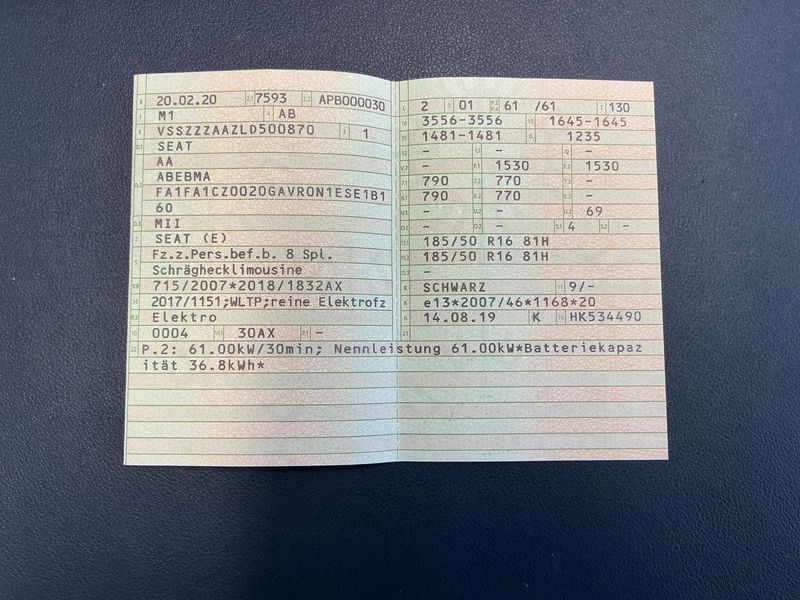 20.02.20 7593 APB000030
M1 AB
VSSZZZAAZLD500870 1
SEAT
AA
ABEBMA
FA1FA1CZ0020GAVRON1ESE1B1
60
MII
SEAT (E)
Fz.z.Pers.bef.b. 8 Spl.
Schräghecklimousine
715/2007*2018/1832AX
2017/1151;WLTP;reine Elektrofz
Elektro
0004 30AX -
L 2 01 61 /61 T 130
3556-3556 1645-1645
1481-1481 G 1235
- - Q -
- 1530 1530
790 770 -
790 770 -
- - 69
- - 4 -
185/50 R16 81H
185/50 R16 81H
-
R SCHWARZ 11 9/-
K e13*2007/46*1168*20
6 14.08.19 K HK534490
21
22 P.2: 61.00kW/30min; Nennleistung 61.00kW*Batteriekapaz
ität 36.8kWh*